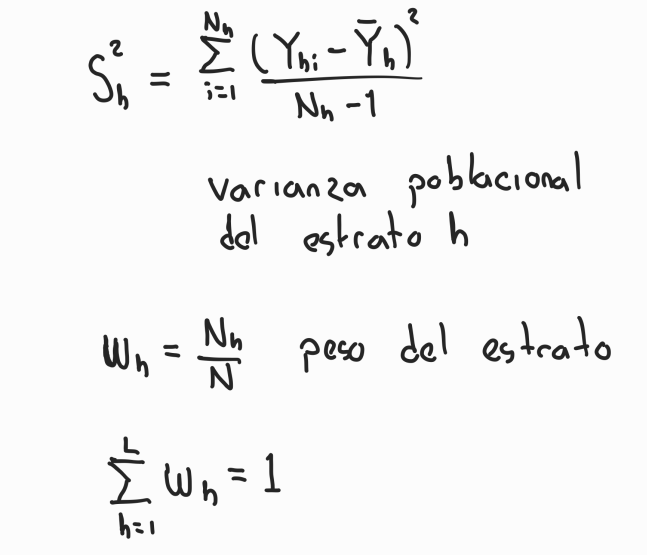 S_h^2 = \sum_{i=1}^{N_h} \frac{(Y_{hi} - \bar{Y}_h)^2}{N_h - 1}
varianza poblacional
del estrato h
W_h = \frac{N_h}{N} peso del estrato
\sum_{h=1}^{L} W_h = 1